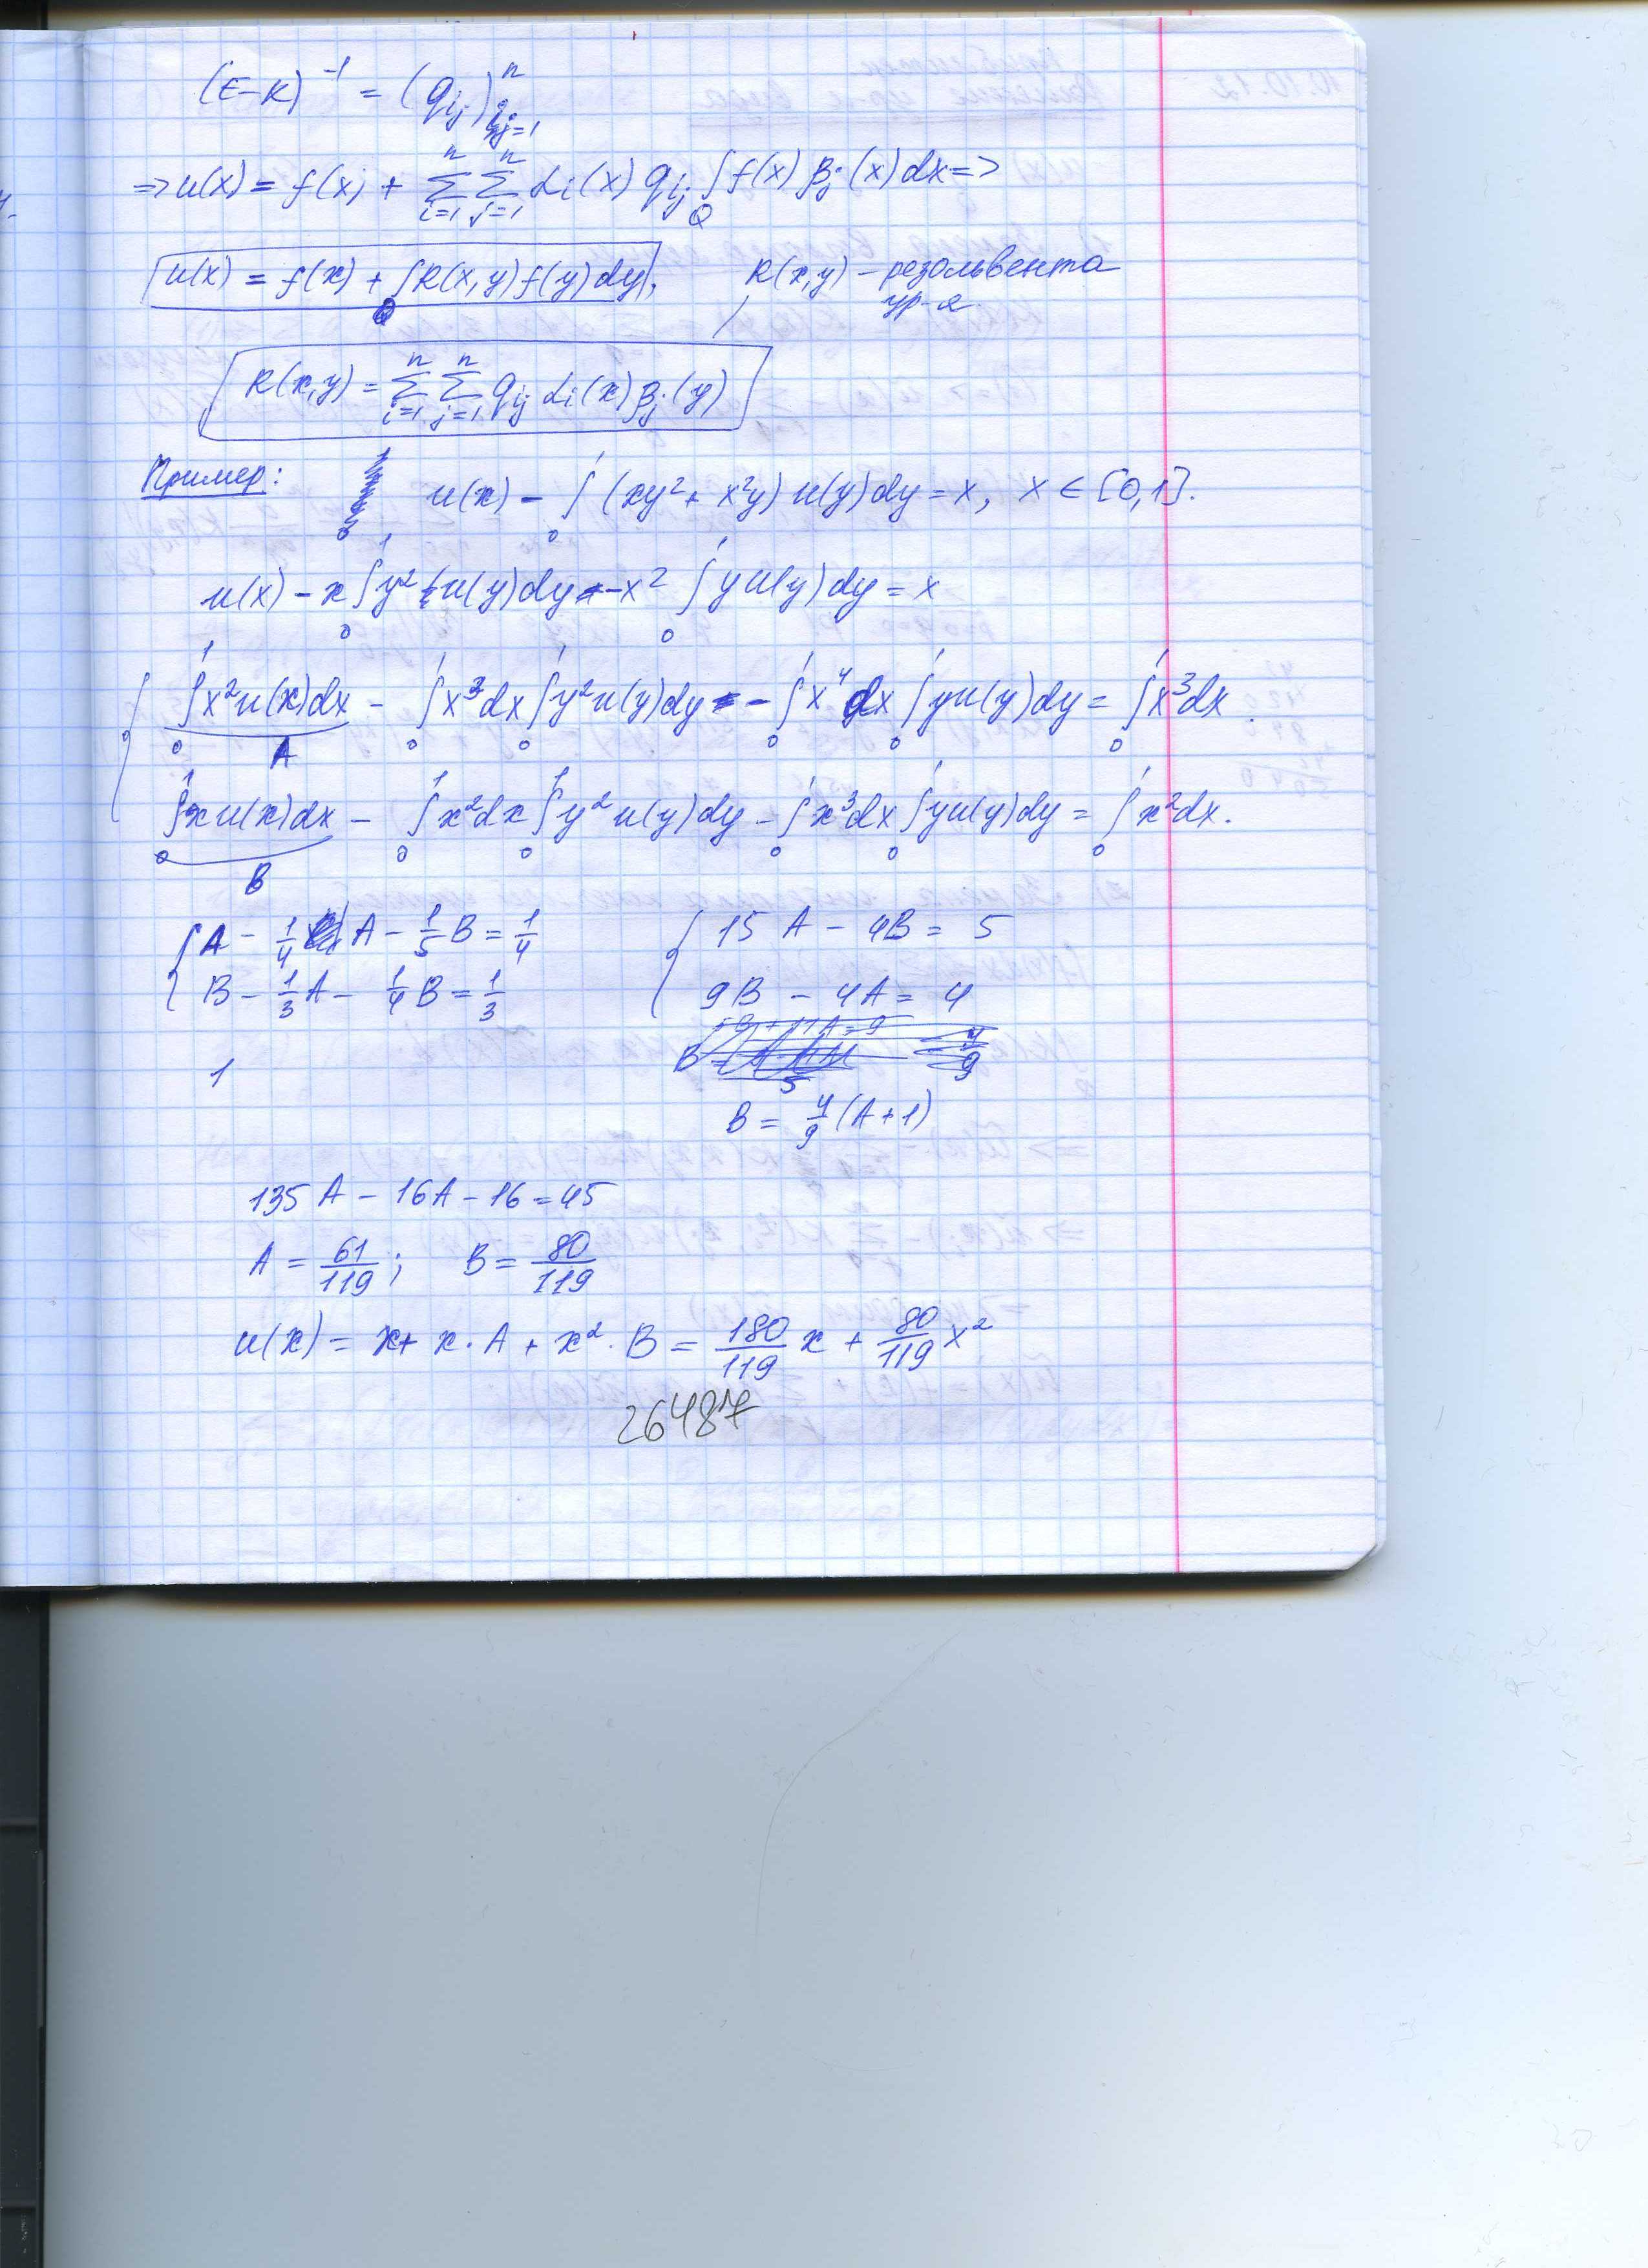 (E-K)⁻¹ = (q_ij)ⁿ_{i,j=1}
=> u(x) = f(x) + Σ_{i=1}^{n} Σ_{j=1}^{n} α_i(x) q_ij ∫_Q f(x) β_j(x) dx =>
u(x) = f(x) + ∫_Q R(x,y) f(y) dy, R(x,y) - резольвента
ур-я
R(x,y) = Σ_{i=1}^{n} Σ_{j=1}^{n} q_ij α_i(x) β_j(y)
Пример: u(x) - ∫₀¹ (xy² + x²y) u(y) dy = x, x ∈ [0,1].
u(x) - x ∫₀¹ y² u(y) dy - x² ∫₀¹ y u(y) dy = x
{ ∫₀¹ x² u(x) dx - ∫₀¹ x³ dx ∫₀¹ y² u(y) dy - ∫₀¹ x⁴ dx ∫₀¹ y u(y) dy = ∫₀¹ x³ dx.
A
∫₀¹ x u(x) dx - ∫₀¹ x² dx ∫₀¹ y² u(y) dy - ∫₀¹ x³ dx ∫₀¹ y u(y) dy = ∫₀¹ x² dx.
B
{ A - 1/4 A - 1/5 B = 1/4 { 15A - 4B = 5
B - 1/3 A - 1/4 B = 1/3 9B - 4A = 4
1
B = 4/9 (A+1)
135A - 16A - 16 = 45
A = 61/119; B = 80/119
u(x) = x + x·A + x²·B = 180/119 x + 80/119 x²
26487